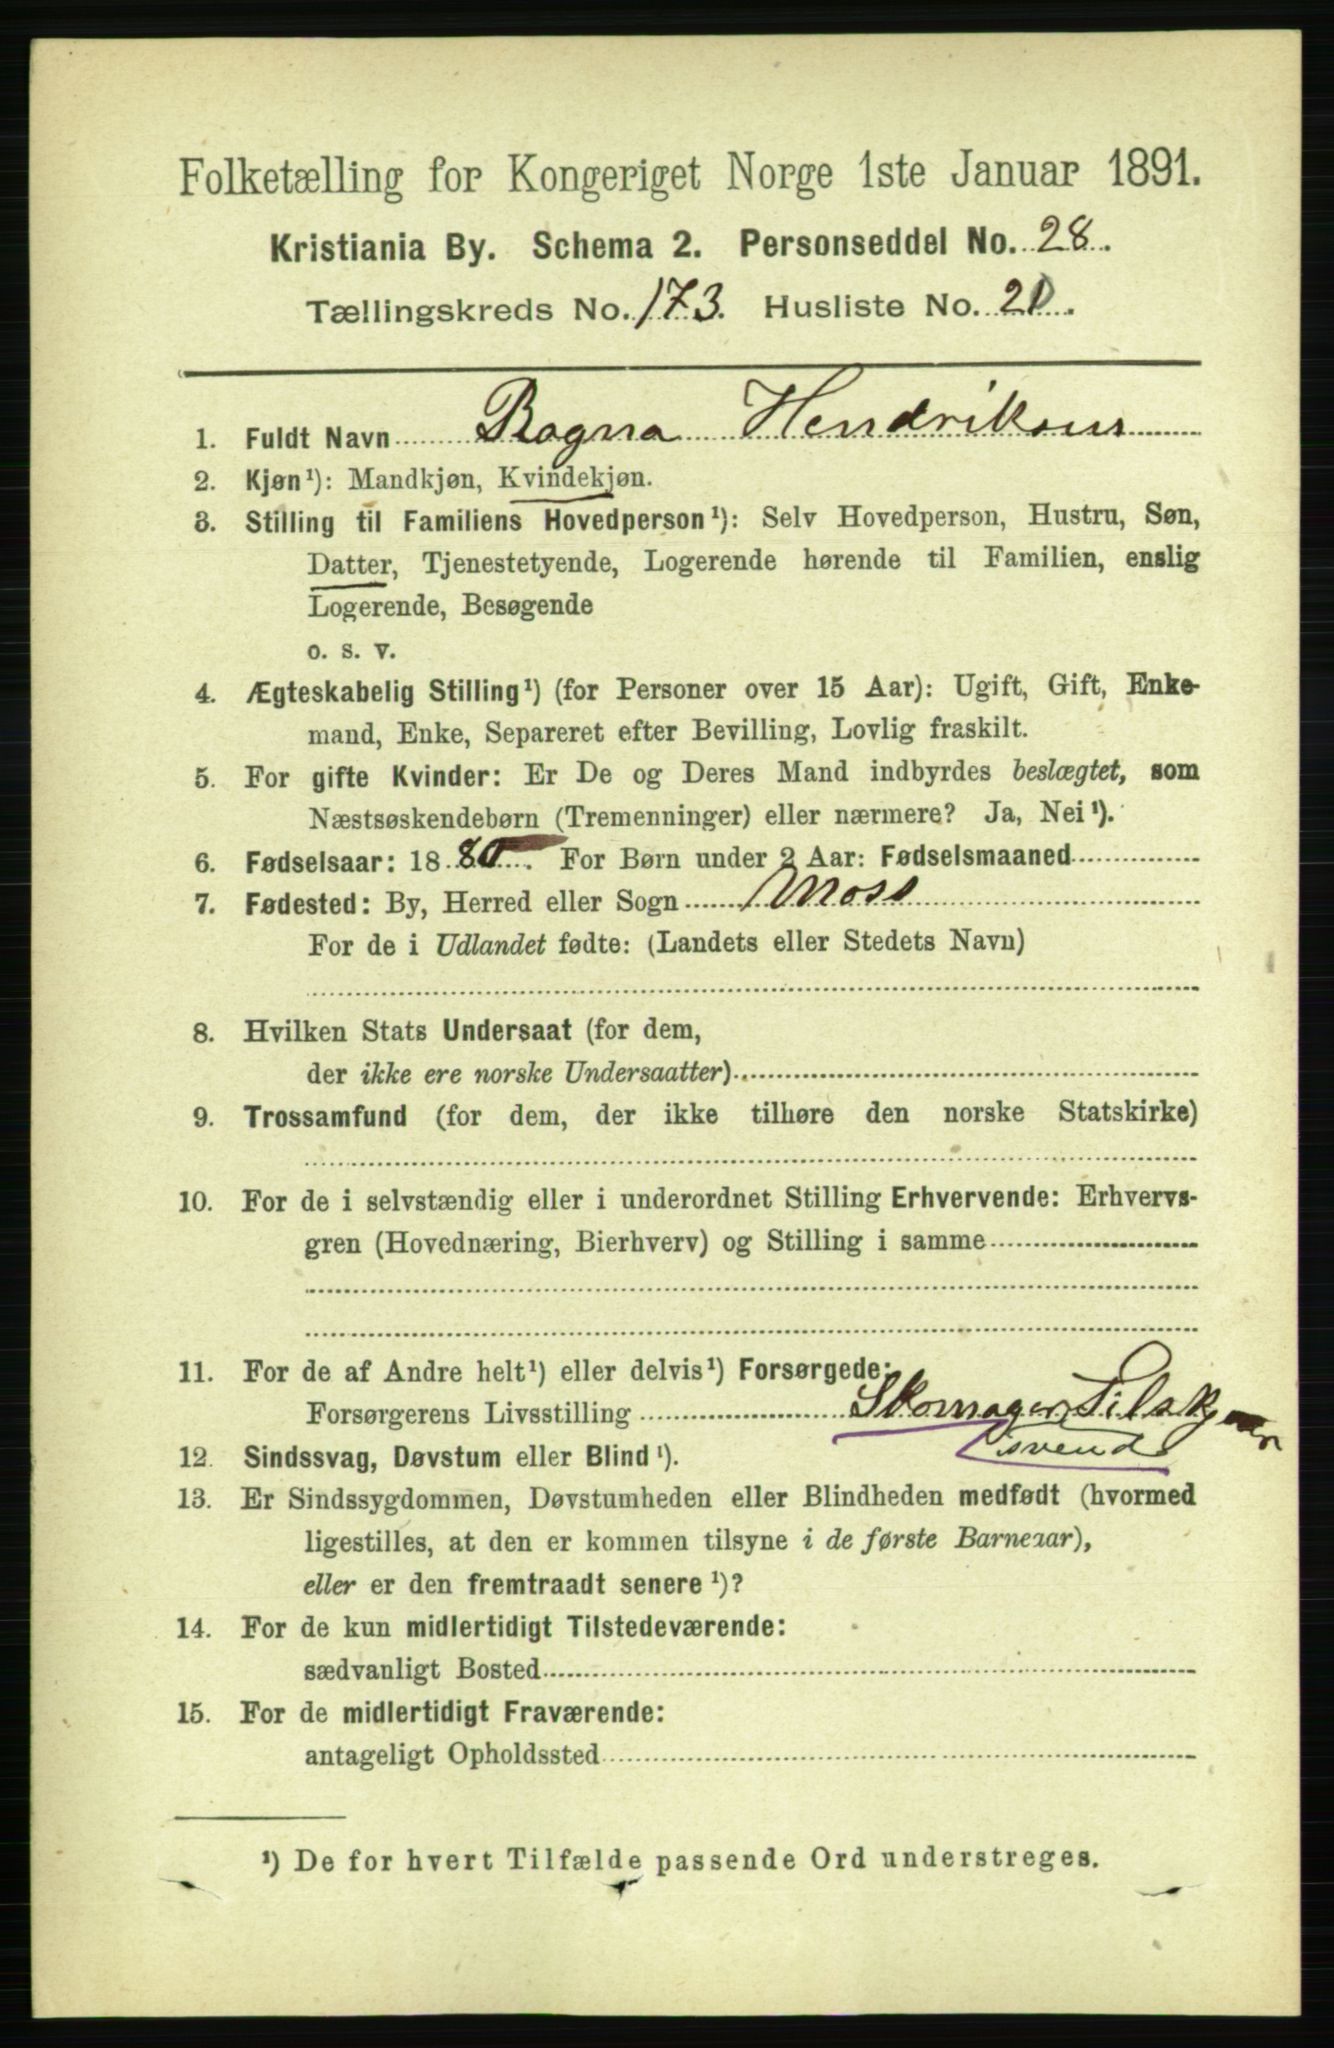 Folketælling for Kongeriget Norge 1ste Januar 1891.
Kristiania By. Schema 2. Personseddel No. 28.
Tællingskreds No. 173. Husliste No. 20.
1. Fuldt Navn Ragna Hendriksen
2. Kjøn¹): Mandkjøn, Kvindekjøn.
3. Stilling til Familiens Hovedperson¹): Selv Hovedperson, Hustru, Søn,
Datter, Tjenestetyende, Logerende hørende til Familien, enslig
Logerende, Besøgende
o. s. v.
4. Ægteskabelig Stilling¹) (for Personer over 15 Aar): Ugift, Gift, Enke-
mand, Enke, Separeret efter Bevilling, Lovlig fraskilt.
5. For gifte Kvinder: Er De og Deres Mand indbyrdes beslægtet, som
Næstsøskendebørn (Tremenninger) eller nærmere? Ja, Nei¹).
6. Fødselsaar: 1880. For Børn under 2 Aar: Fødselsmaaned
7. Fødested: By, Herred eller Sogn Moss
For de i Udlandet fødte: (Landets eller Stedets Navn)
8. Hvilken Stats Undersaat (for dem,
der ikke ere norske Undersaatter)
9. Trossamfund (for dem, der ikke tilhøre den norske Statskirke)
10. For de i selvstændig eller i underordnet Stilling Erhvervende: Erhvervs-
gren (Hovednæring, Bierhverv) og Stilling i samme
11. For de af Andre helt¹) eller delvis¹) Forsørgede:
Forsørgerens Livsstilling Skomager, Tilskjærer
svend
12. Sindssvag, Døvstum eller Blind¹).
13. Er Sindssygdommen, Døvstumheden eller Blindheden medfødt (hvormed
ligestilles, at den er kommen tilsyne i de første Barneaar),
eller er den fremtraadt senere¹)?
14. For de kun midlertidigt Tilstedeværende:
sædvanligt Bosted
15. For de midlertidigt Fraværende:
antageligt Opholdssted
¹) De for hvert Tilfælde passende Ord understreges.